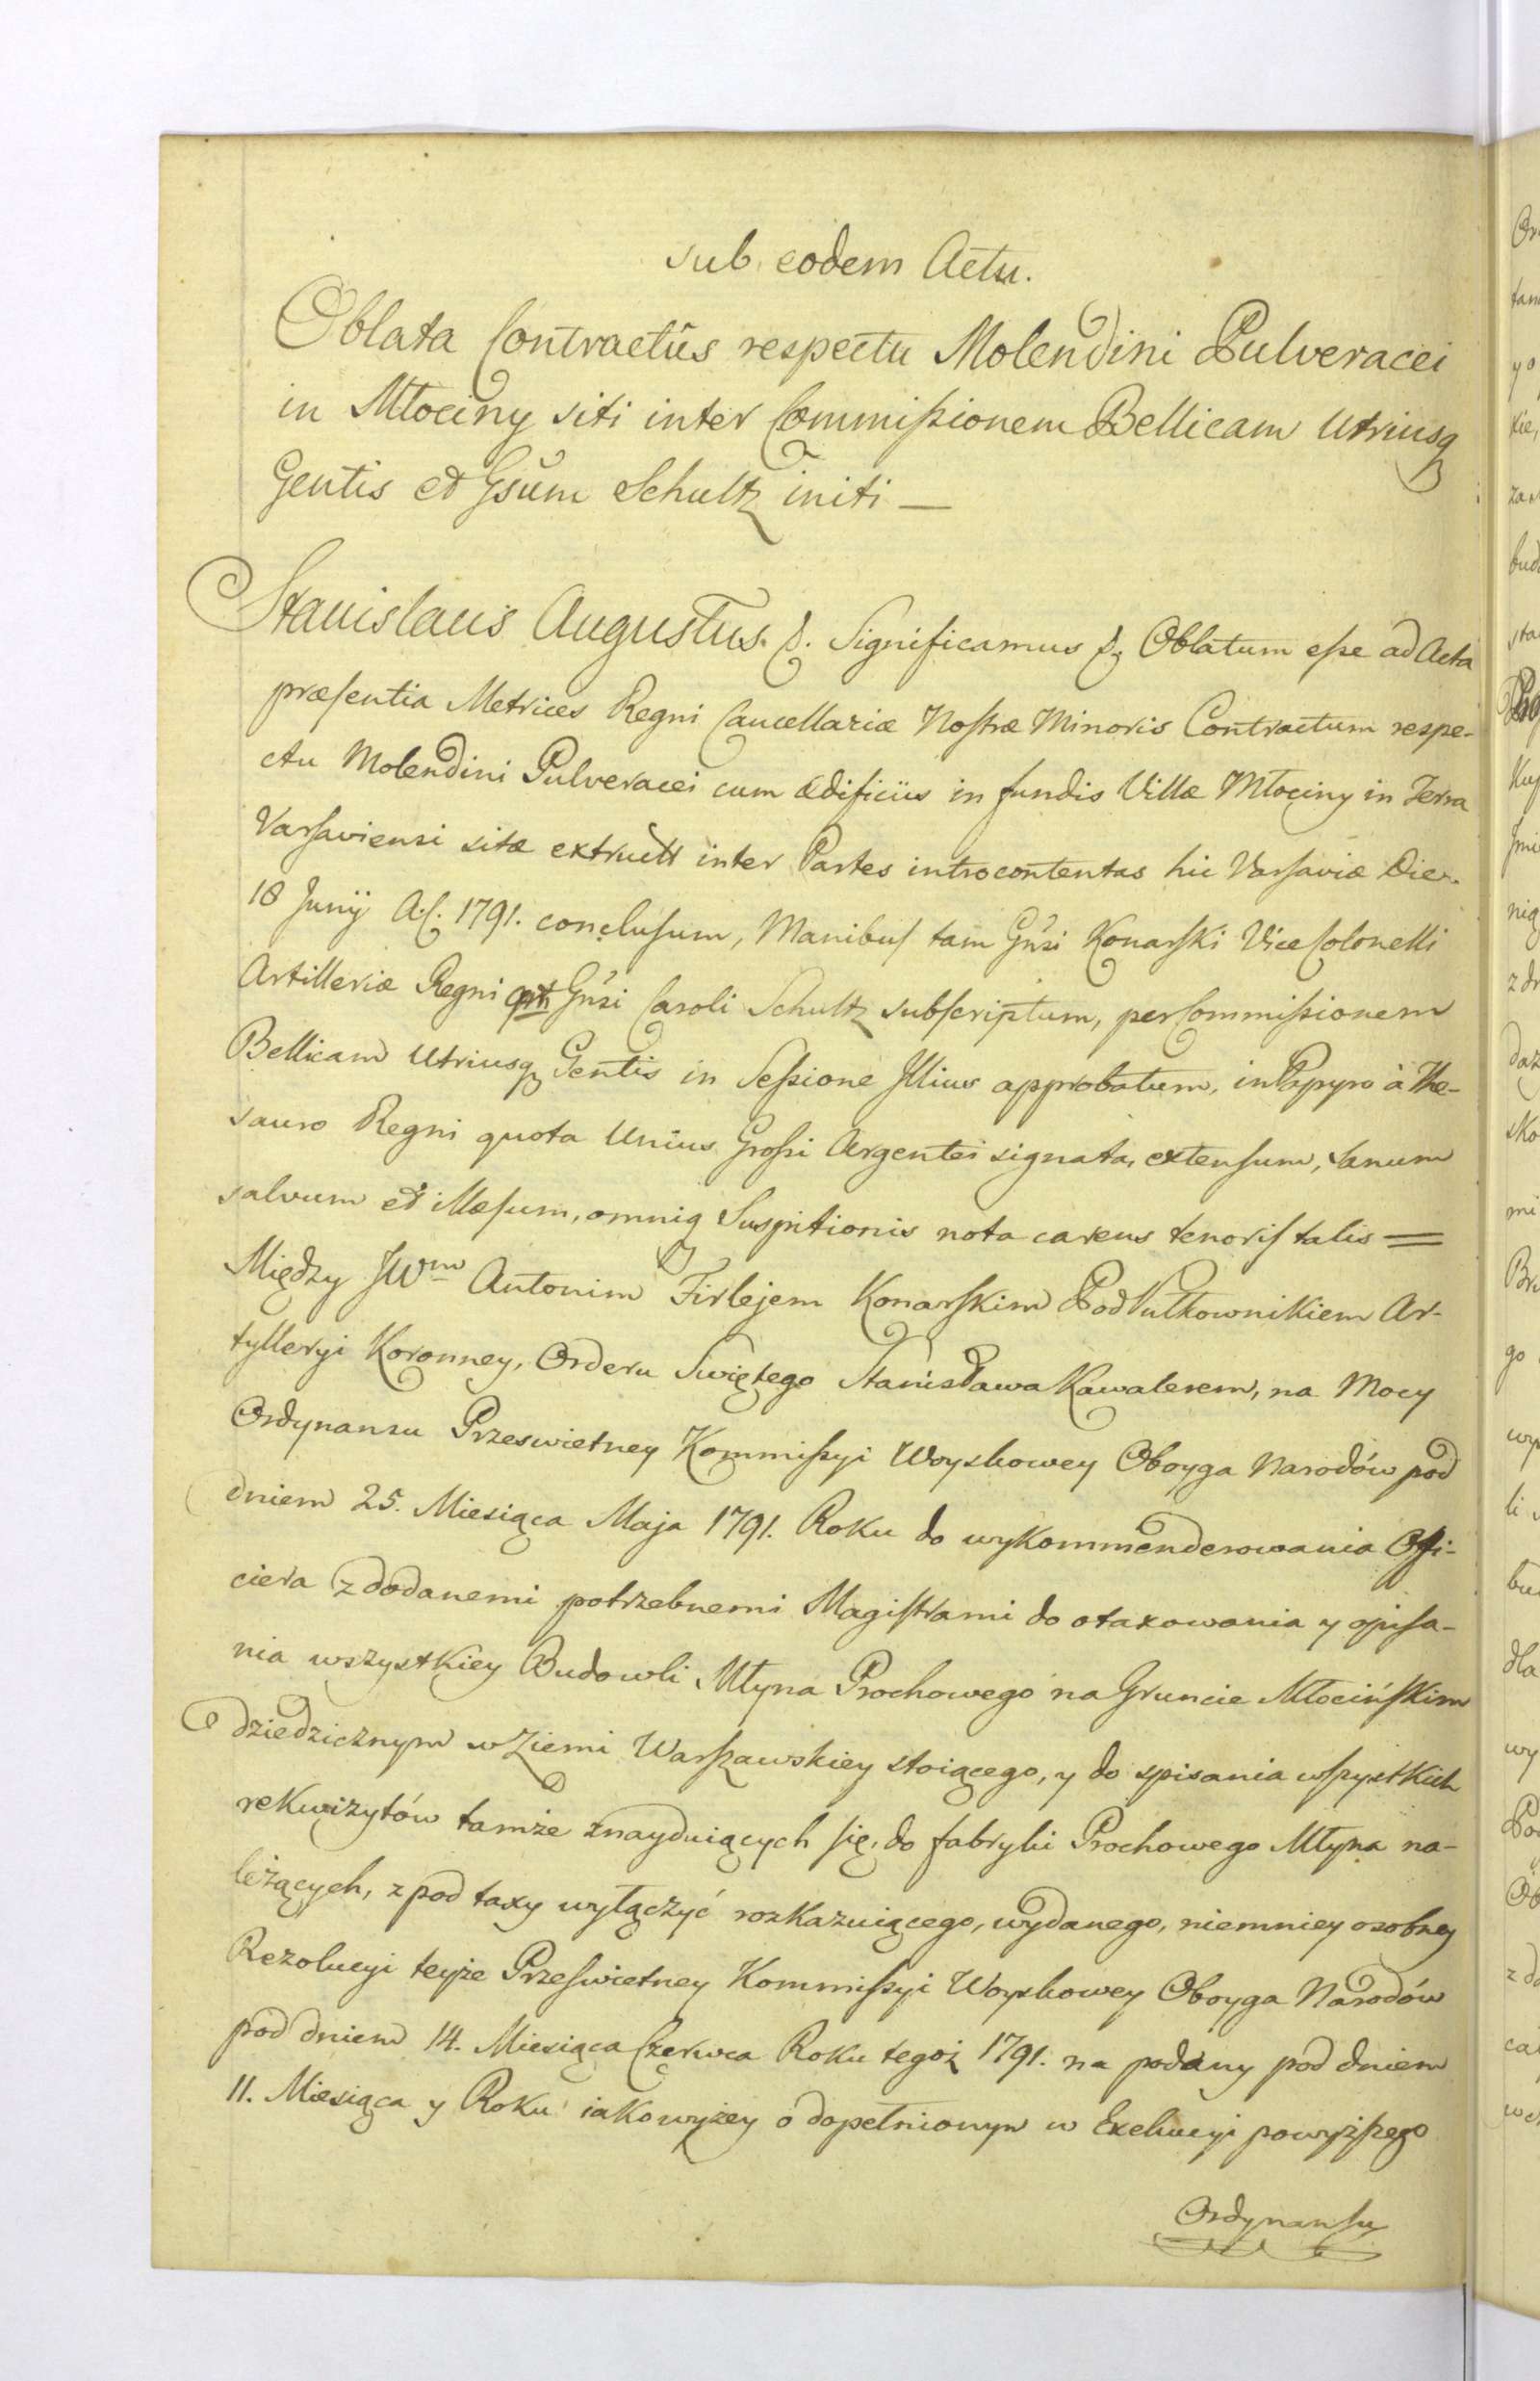 sub eodem Actu.
Oblata Contractûs respectu Molendini Pulveracei
in Młociny siti inter Commissionem Bellicam Utriusq
Gentis et Gsum Schultz initi —
Stanislaus Augustus. &. Significamus &. Oblatum esse ad Acta
præsentia Metrices Regni Cancellariæ Nostræ Minoris Contractum respe-
ctu Molendini Pulveracei cum Ædificiis in fundis Villæ Młociny in Terra
Varsaviensi sitæ extructi inter Partes introcontentas hic Varsaviæ Die
18 Junij A.C. 1791. conclusum, Manibus tam Gnsi Konarski Vice Colonelli
Artilleriæ Regni qm Gnsi Caroli Schultz subscriptum, per Commissionem
Bellicam Utriusq Gentis in Sessione Illius approbatum, in Papyro à The-
sauro Regni quota Unius Grossi Argentei signata, extensum, sanum
salvum et illæsum, omniq Suspitionis nota carens tenoris talis =
Między JWm Antonim Firlejem Konarskim PodPułkownikiem Ar-
tylleryi Koronney, Orderu Swiętego Stanisława Kawalerem, na Mocy
Ordynansu Przeswietney Kommissyi Woyskowey Oboyga Narodów pod
dniem 25. Miesiąca Maja 1791. Roku do wykommenderowania Offi-
ciera z dodanemi potrzebnemi Magistrami do otaxowania y opisa-
nia wszystkiey Budowli Młyna Prochowego na Gruncie Młocińskim
dziedzicznym w Ziemi Warszawskiey stoiącego, y do spisania wszystkich
rekwizytów tamże znayduiących się, do fabryki Prochowego Młyna na-
leżących, z pod taxy wyłączyć rozkazuiącego, wydanego, niemniey osobney
Rezolucyi teyże Przeswietney Kommissyi Woyskowey Oboyga Narodów
pod dniem 14. Miesiąca Czerwca Roku tegoż 1791. na podany pod dniem
11. Miesiąca y Roku iako wyżey o dopełnionym w Exekucyi powyższego
Ordynansu